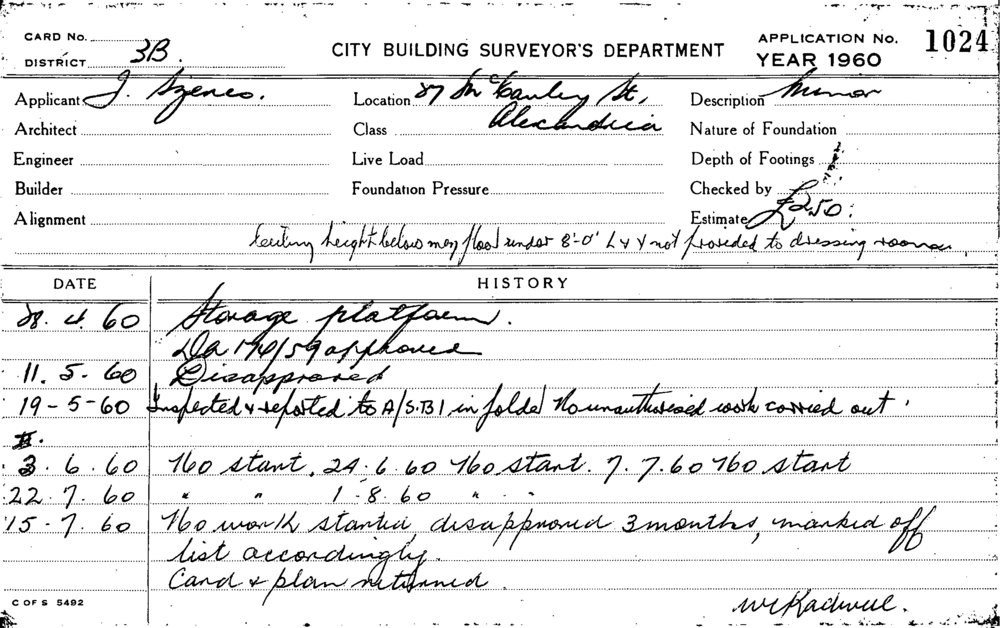 CARD No.
DISTRICT 3B.
CITY BUILDING SURVEYOR'S DEPARTMENT
APPLICATION No. 1024
YEAR 1960
Applicant J. Szenes.
Location 87 McCauley St,
Alexandria
Description Minor
Architect
Class
Nature of Foundation
Engineer
Live Load
Depth of Footings
Builder
Foundation Pressure
Checked by
Alignment
Estimate £250.
Ceiling height below mezz floor under 8'-0" L & V not provided to dressing rooms
DATE HISTORY
28. 4. 60 Storage platform.
DA 174/59 approved
11. 5. 60 Disapproved
19-5-60 Inspected & reported to A/S.B.I in folder No unauthorised work carried out.
3. 6. 60 No start. 24. 6. 60 No start. 7. 7. 60 No start
22. 7. 60 " " 1. 8. 60 " "
15. 7. 60 No work started, disapproved 3 months, marked off
list accordingly.
Card & plan returned.
C OF S 5492